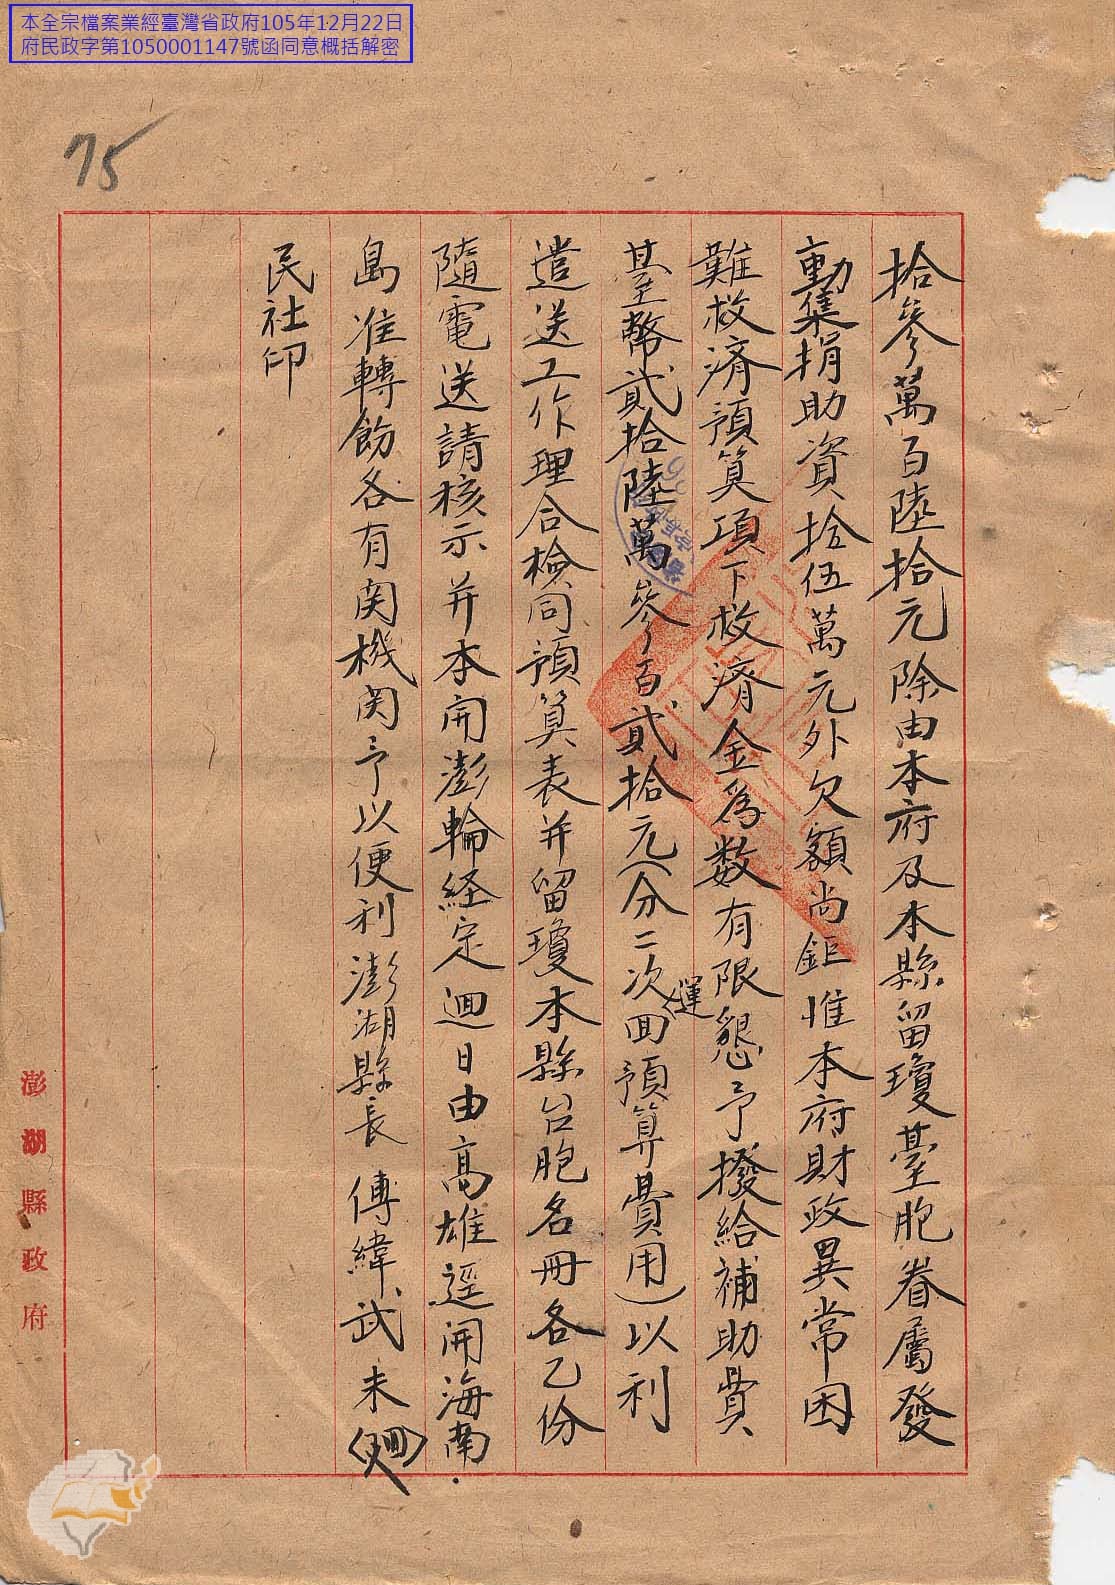 本全宗檔案業經臺灣省政府105年12月22日
府民政字第1050001147號函同意概括解密
75
拾參萬百陸拾元除由本府及本縣留瓊臺胞眷屬發
動集捐助資拾伍萬元外欠額尚鉅惟本府財政異常困
難救济預算項下救済金為数有限懇予撥給補助費
臺幣貳拾陸萬參百貳拾元(分二次運回預算費用)以利
遣送工作理合檢同預算表并留瓊本縣台胞名冊各乙份
隨電送請核示并本開澎輪経定迴日由高雄逕開海南
島准轉飭各有関機関予以便利澎湖縣長傅緯武未
民社印
澎湖縣政府